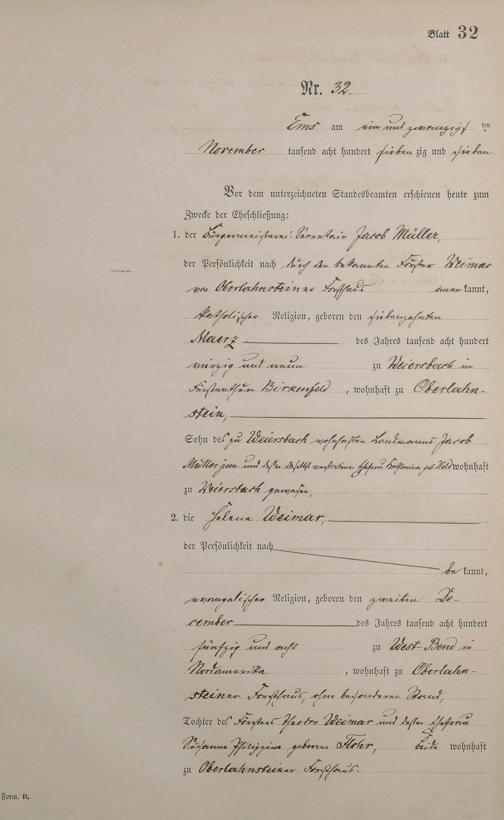 Blatt 32
Nr. 32.
Ems am ein und zwanzigsten
November tausend acht hundert sieben zig und sieben
Vor dem unterzeichneten Standesbeamten erschienen heute zum
Zwecke der Eheschließung:
1. der Bürgermeisterei-Secretair Jacob Müller,
der Persönlichkeit nach durch den bekannten Förster Weimar
von Oberlahnsteiner Forsthaus anerkannt,
katholischer Religion, geboren den siebenzehnten
Maerz des Jahres tausend acht hundert
vierzig und neun zu Weiersbach im
Fürstenthum Birkenfeld, wohnhaft zu Oberlahn-
stein,
Sohn des zu Weiersbach wohnhaften Landmanns Jacob
Müller und dessen daselbst verstorbene Ehefrau wohnhaft
zu Weiersbach gewesen,
2. die Helena Weimar,
der Persönlichkeit nach
be kannt,
evangelischer Religion, geboren den zweiten De-
cember des Jahres tausend acht hundert
fünfzig und acht zu West-Bend in
Nordamerika, wohnhaft zu Oberlahn-
steiner Forsthaus, ohne besonderen Stand,
Tochter des Försters Theodor Weimar und dessen Ehefrau
Susanna Philippina geborene Flohr, beide wohnhaft
zu Oberlahnsteiner Forsthaus.
Form. B.